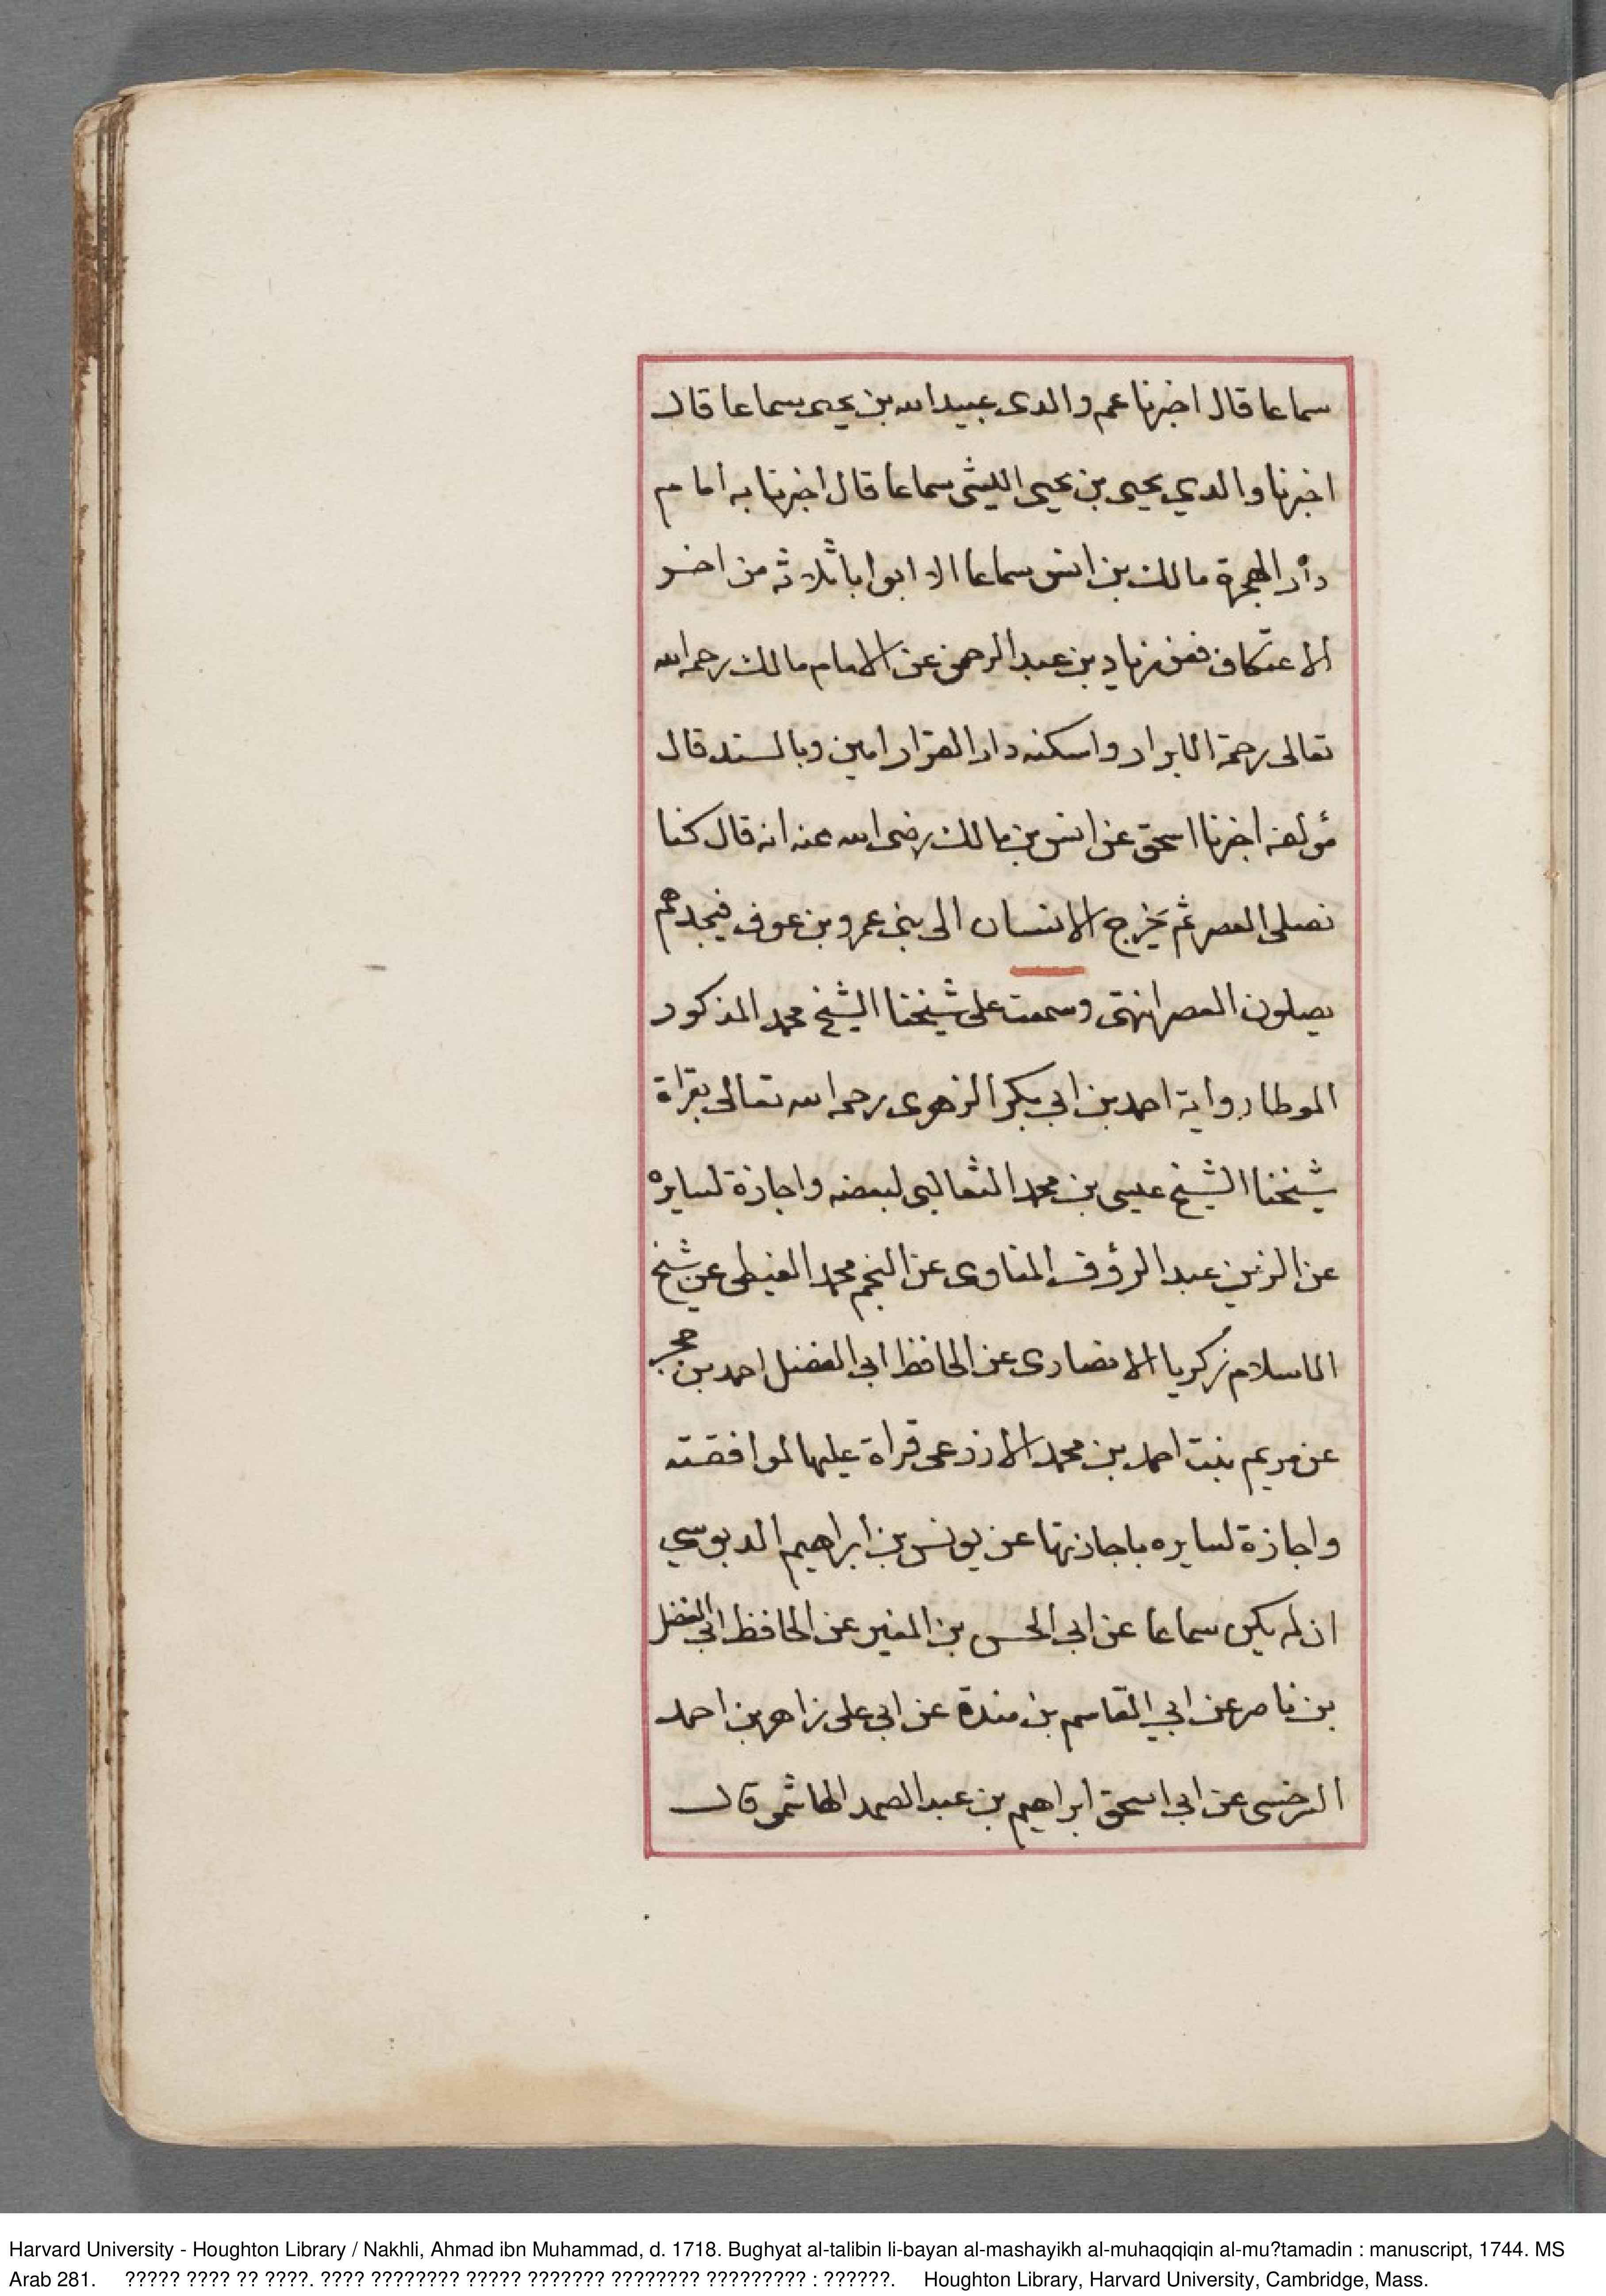 سماعا قال اخبرنا عم والدى عبيد الله بن يحيى سماعا قال
اخبرنا والدي يحيى بن يحيى الليثى سماعا قال اخبرنا به امام
دار الهجرة مالك بن انس سماعا الا ابوابا ثلاثة من اخر
الاعتكاف فعن زياد بن عبد الرحمن عن الامام مالك رحمه الله
تعالى رحمة الابرار واسكنه دار القرار امين وبالسند قال
مؤلفه اخبرنا اسحق عن انس بن مالك رضى الله عنه انه قال كنا
نصلى العصر ثم يخرج الانسان الى بنى عمرو بن عوف فيجدهم
يصلون العصر انتهى وسمعت على شيخنا الشيخ محمد المذكور
الموطا رواية احمد بن ابي بكر الزهرى رحمه الله تعالى بقراة
شيخنا الشيخ عيسى بن محمد الثعالبى لبعضه واجازة لسايره
عن الزين عبد الرؤف المناوى عن النجم محمد الغيطى عن شيخ
الاسلام زكريا الانصارى عن الحافظ ابي الفضل احمد بن حجر
عن مريم بنت احمد بن محمد الاذرعى قراة عليها لموافقته
واجازة لسايره باجازتها عن يونس بن ابراهيم الدبوسي
ان لم يكن سماعا عن ابي الحسن بن المقير عن الحافظ ابي الفضل
بن ناصر عن ابي القاسم بن مندة عن ابي على زاهر بن احمد
السرخسى عن ابي اسحق ابراهيم بن عبد الصمد الهاشمى قال
Harvard University - Houghton Library / Nakhli, Ahmad ibn Muhammad, d. 1718. Bughyat al-talibin li-bayan al-mashayikh al-muhaqqiqin al-mu?tamadin : manuscript, 1744. MS
Arab 281. ????? ???? ?? ????. ???? ???????? ????? ??????? ???????? ????????? : ??????. Houghton Library, Harvard University, Cambridge, Mass.